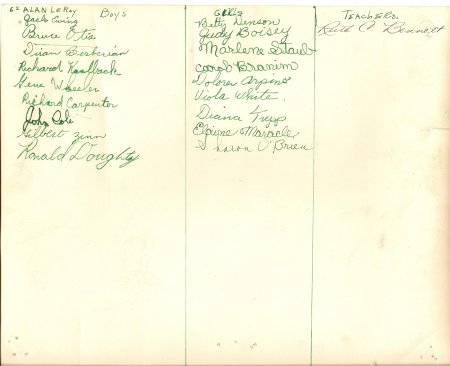 GE ALAN LEROY Boys
Jack Ewing
Bruce Otis
Dian Berberian
Richard Kaufback
Gene Wheeler
Richard Carpenter
John Cole
Gilbert Zinn
Ronald Doughty
GIRLS
Betty Denson
Judy Boisey
Marlene Staub
Carol Branim
Dolores Arpino
Viola White.
Diana Tripp
Elaine Maracle
Sharon O'Brien
TEACHERS
Ruth A Bennett